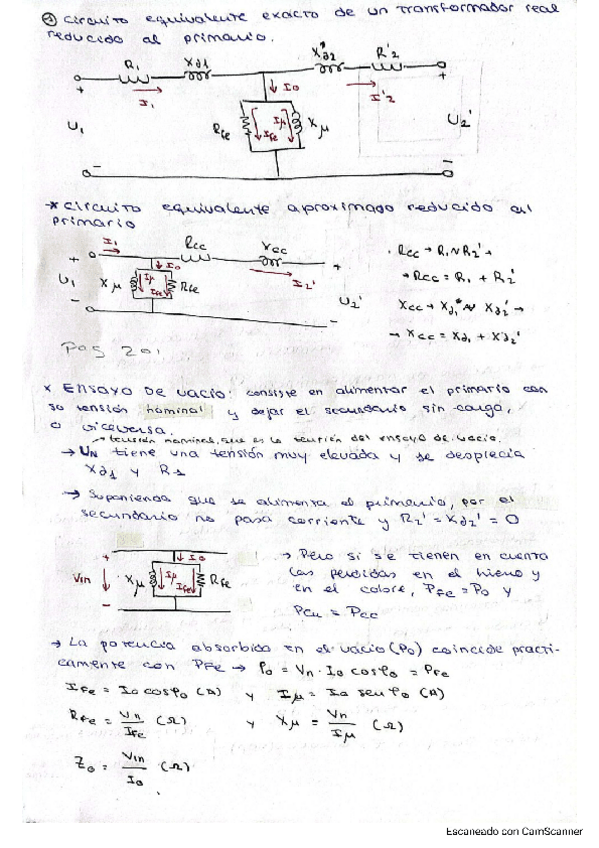 circuito equivalente exacto de un transformador real
reducido al primario.
R1 Xd1 Xd2 R'2
+ I1 I0 I'2 +
U1 Rfe Ife Iμ Xμ U2'
- -
* circuito equivalente aproximado reducido al
primario
I1 Rcc Xcc
+ I0 I2' +
U1 Xμ Iμ Ife Rfe U2'
- -
. Rcc → R1 ~ R2' →
→ Rcc = R1 + R2'
Xcc → Xd1 ~ Xd2' →
→ Xcc = Xd1 + Xd2'
Pag 201
* ENSAYO DE VACIO: consiste en alimentar el primario con
su tensión nominal y dejar el secundario sin carga,
o viceversa.
→ tensión nominal, que es la tensión del ensayo de vacio.
→ UN tiene una tensión muy elevada y se desplecia
Xd1 y R1
→ Suponiendo que se alimenta el primario, por el
secundario no pasa corriente y R2' = Xd2' = 0
+ I0
Vin Xμ Iμ Ife Rfe
-
→ Pero si se tienen en cuenta
las perdidas en el hierro y
en el cobre, Pfe = P0 y
Pcu = Pcc
→ La potencia absorbida en el vacio (P0) coincide practi-
camente con PFe → P0 = Vn · I0 cosφ0 = PFe
IFe = I0 cosφ0 (A) y Iμ = I0 senφ0 (A)
RFe = Vn/Ife (Ω) y Xμ = Vn/Iμ (Ω)
Z0 = Vin/I0 (Ω)
Escaneado con CamScanner